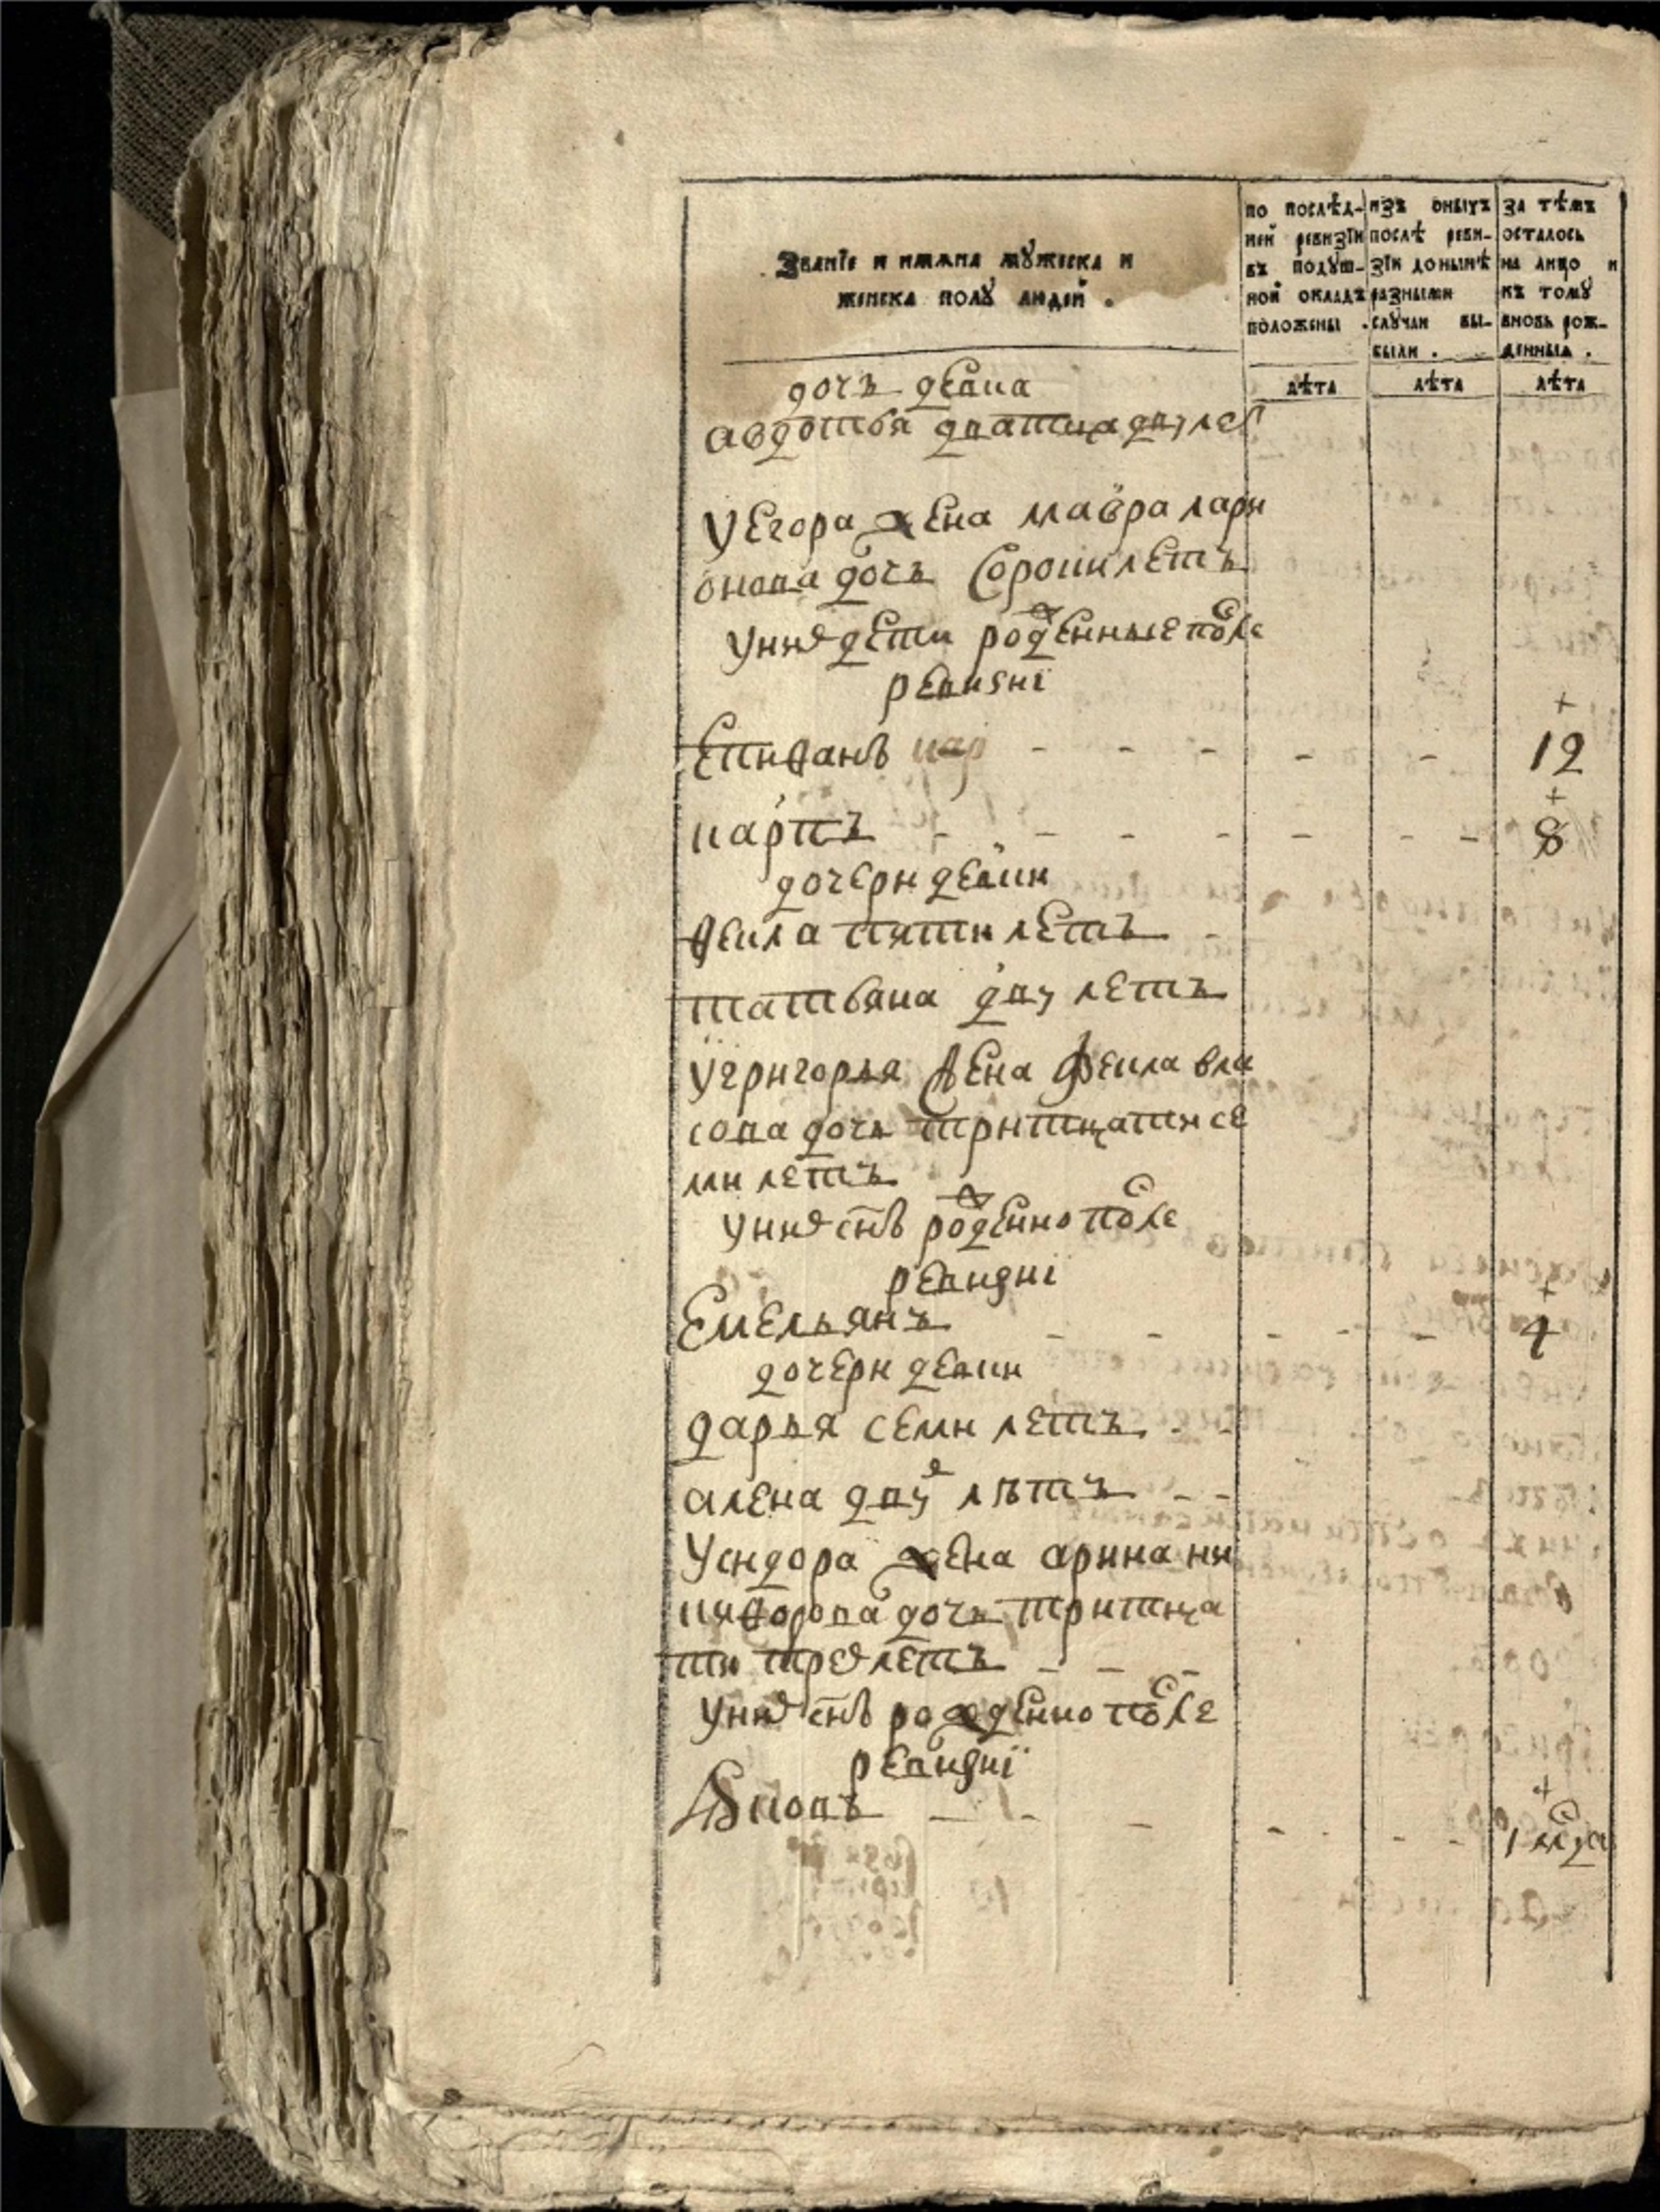 Званїе и имяна мужеска и
женска полу людей .
по послѣд-
ней ревизїи
въ подуш-
ной окладъ
положены .
изъ оныхъ
послѣ реви-
зїи донынѣ
разными
случаи вы-
были .
за тѣмъ
осталось
на лицо и
къ тому
вновь рож-
денныя .
лѣта лѣта лѣта
дочь девка
авдотья дватцадву лет
У Егора жена мавра лари
онова дочь Сороки летъ
у них дети рожденные после
ревизиї
Епифанъ - - - - - 12
карпъ - - - - - - - 8
дочери девки
фекла пяти летъ -
татьяна дву летъ
У григорья жена Фекла вла
сова дочь тритцати се
ми летъ
у них снъ рожденно после
ревизиї
Емельянъ - - - - 4
дочери девки
дарья семи летъ - -
алена двух лѣтъ - -
У сидора жена арина ни
кифорова дочь тритца
ти трех летъ - - -
у них снъ рожденно после
ревизиї
Яковъ - - - - - - 1 меца